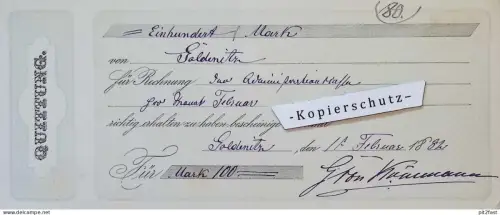 80.
QUITTUNG
Einhundert Mark
von Goldenitz
für Rechnung der Administration
pro Monat Februar
richtig erhalten zu haben, bescheinige
-Kopierschutz-
Goldenitz, den 11. Februar 1882
Für Mark 100